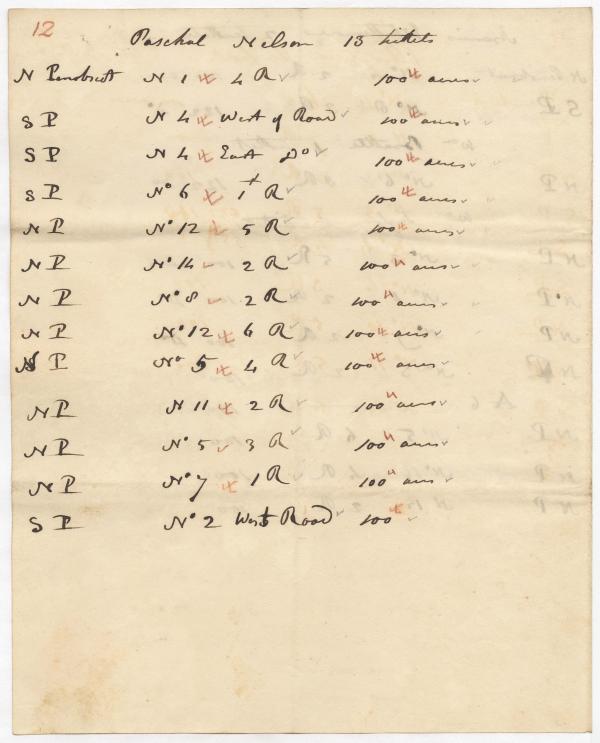 12
Paschal Nelson 13 tickets
N Penobscott N 1 4 R 100 acres
S P N 4 West of Road 100 acres
S P N 4 East Do 100 acres
S P No 6 1st R 100 acres
N P No 12 5 R 100 acres
N P No 14 2 R 100 acres
N P No 8 2 R 100 acres
N P No 12 6 R 100 acres
N P No 5 4 R 100 acres
N P N 11 2 R 100 acres
N P No 5 3 R 100 acres
N P No 7 1 R 100 acres
S P No 2 West Road 100